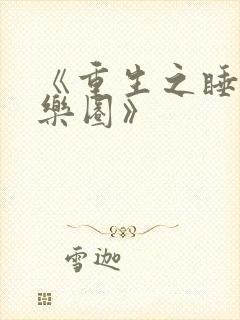 《重生之睡
樂園》
雪迦